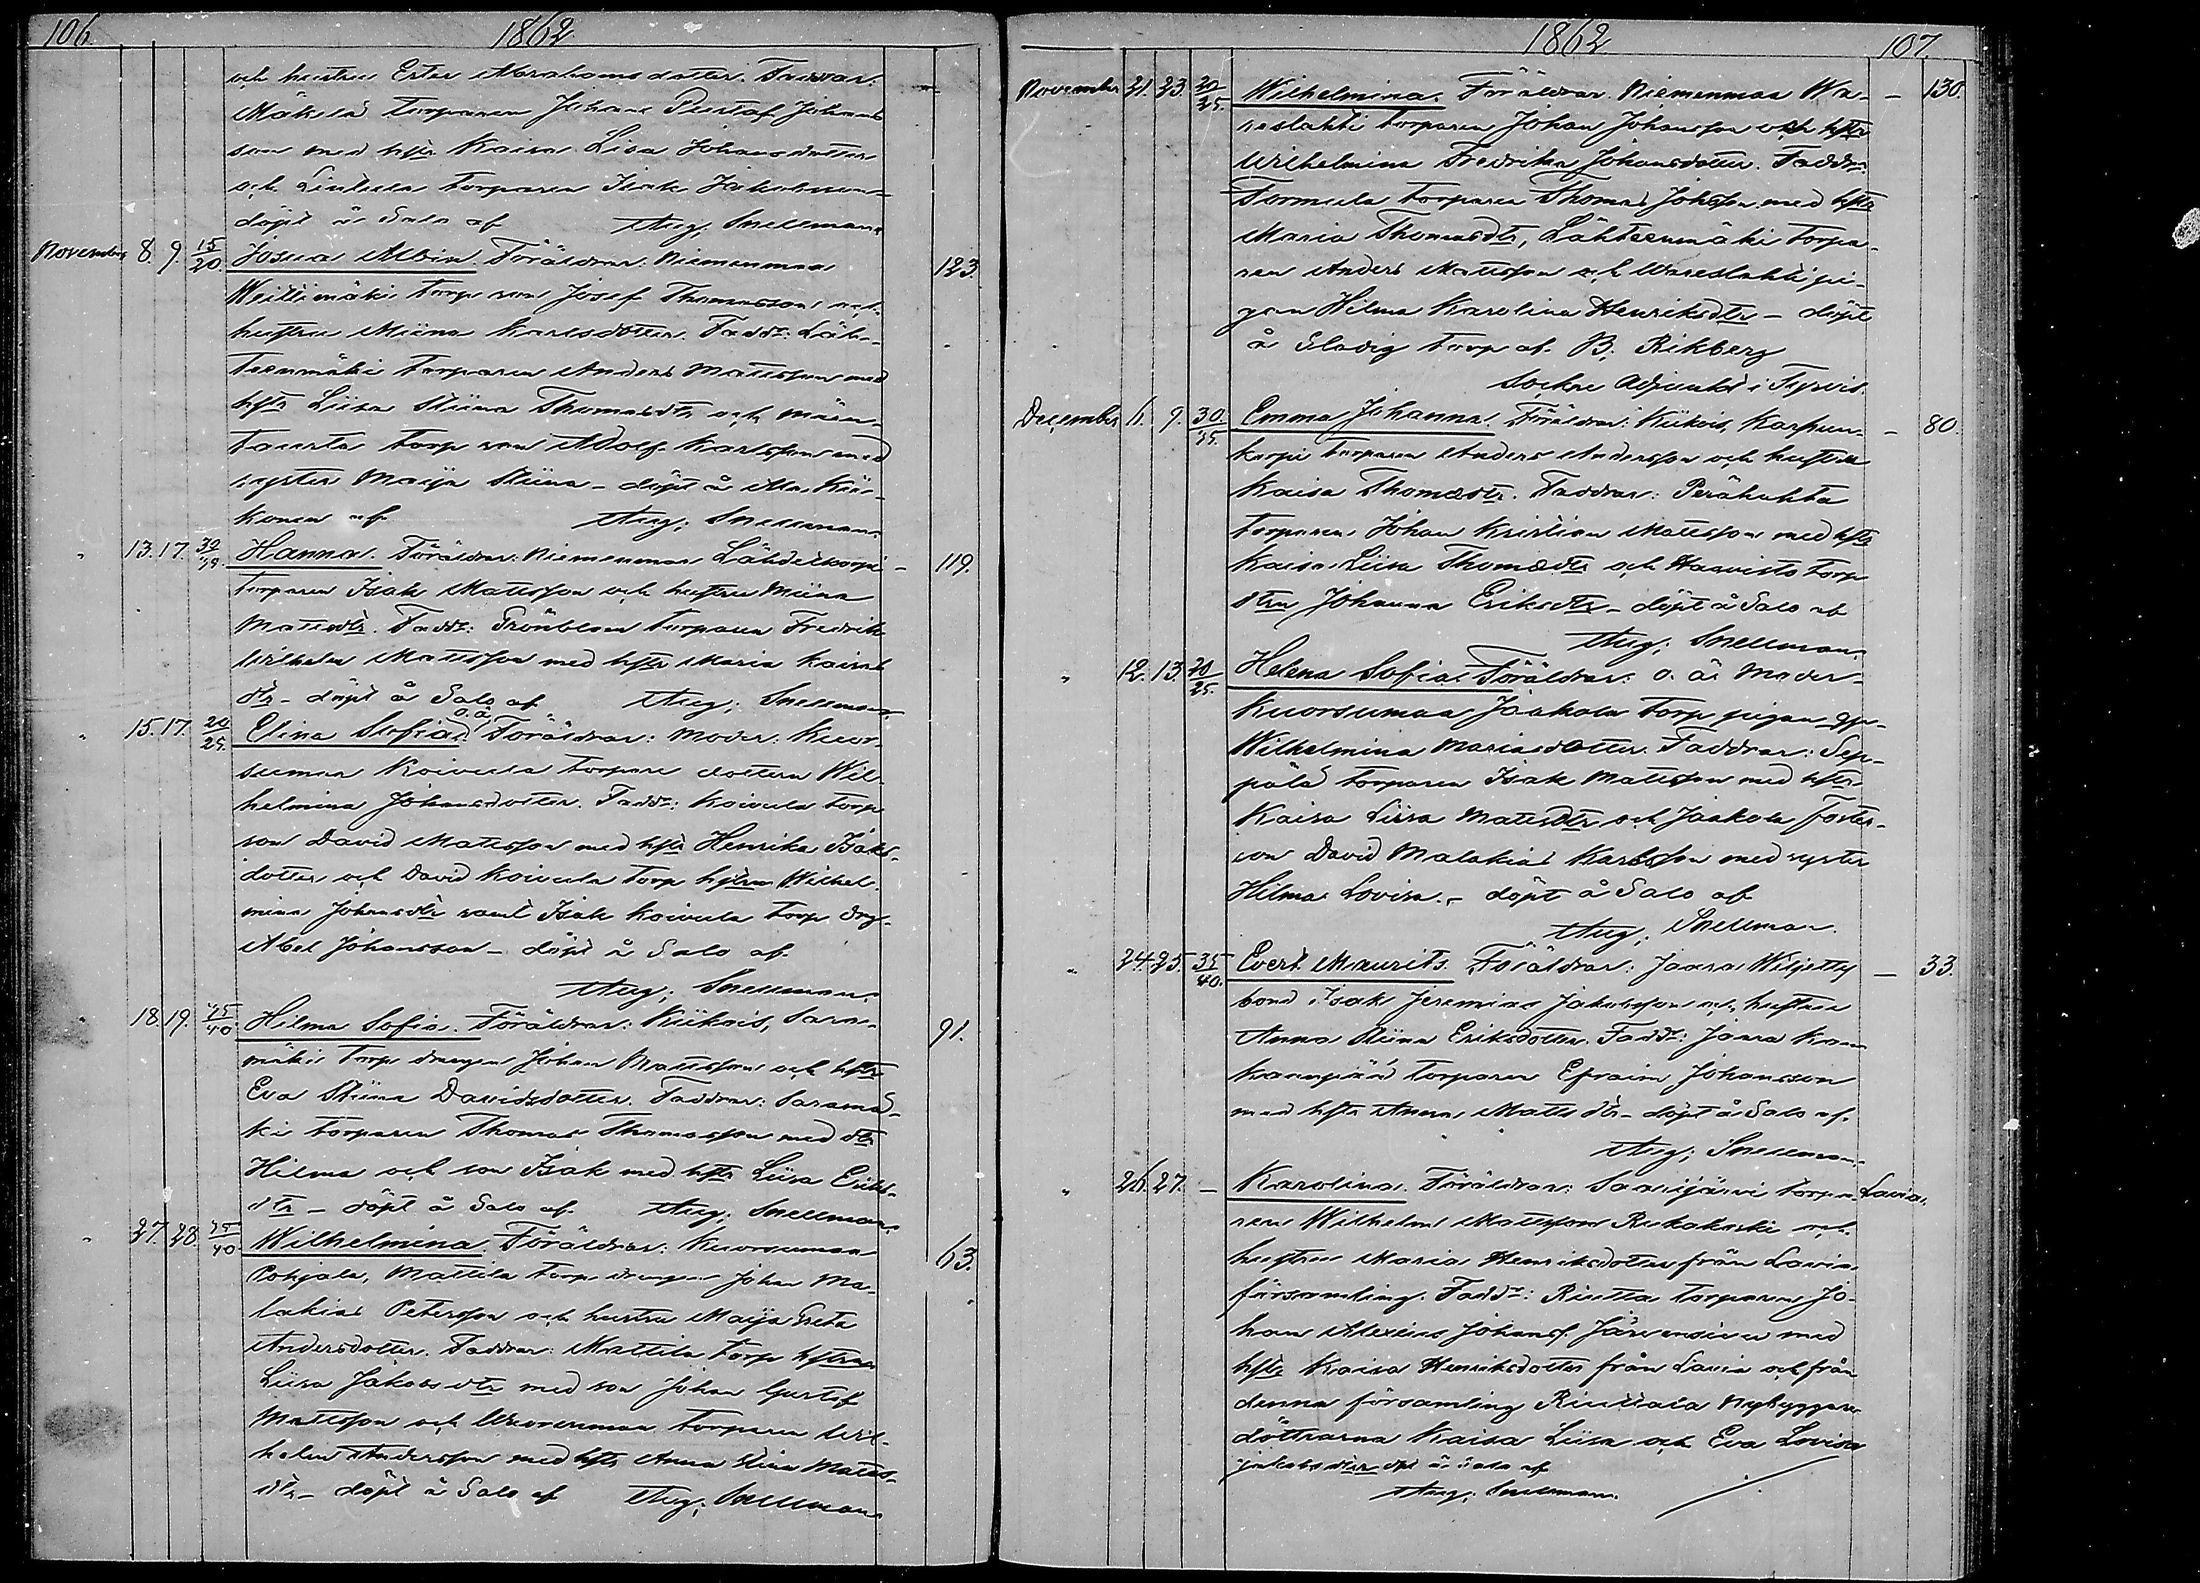 106. 1862
och hustru Ester Abrahamsdotter. Faddrar:
Mäkelä torparen Johan Gustaf Johans-
son med hstr Kaisa Lisa Johansdotter
och torparen Isak Jakobsson
döpt å Salo af Aug. Snellman.
November 8. 9. 15/20. Josua Albin. Föräldrar: Niemenmaa 123.
Weittimäki torp son Josef Thomasson och
hustru Miina Karlsdotter. Faddr: Läh-
teenmäki torparen Anders Mattsson med
hstr Liisa Stiina Thomasdtr och
torp son Adolf Karlsson med
syster Maija Stiina - döpt å
af Aug. Snellman.
" 13. 17. Hanna. Föräldrar: Niemenmaa Lähdekorpi - 119.
torparen Isak Mattsson och hustru Miina
Mattsdtr. Faddr: Grönblom torparen Fredrik
Wilhelm Mattsson med hstr Maria
dtr - döpt å Salo af Aug. Snellman.
" 15. 17. 20/25. Elina Sofia. o.ä. Föräldrar: Moder: Kuor-
sumaa Koivula torpare dottern Wil-
helmina Johansdotter. Faddr: Koivula torp
son David Mattsson med hstr Henrika Isaks-
dotter och David Koivula torp hstrun Wilhel-
mina Johansdtr samt Isak Koivula torp drg
Abel Johansson - döpt å Salo af
Aug. Snellman.
18. 19. Hilma Sofia. Föräldrar: Kiikois, Sara- 91.
mäki torp drengen Johan Mattsson och hstr
Eva Stiina Davidsdotter. Faddrar: Saramä-
ki torparen Thomas Thomasson med dtr
Hilma och son Isak med hstr Liisa Eriks-
dtr - döpt å Salo af Aug. Snellman.
" 27. 28. Wilhelmina. Föräldrar: Kuorsumaa 63.
Pohjala, Mattila torp drengen Johan Ma-
lakias Petersson och hustru Maija Greta
Andersdotter. Faddrar: Mattila torp hstrun
Liisa Jakobsdtr med son Johan Gustaf
Mattsson och Wuorenmaa torparen Wil-
helm Andersson med hstr Anna Stina Matts-
dtr - döpt å Salo af Aug. Snellman
1862 107.
November 21. 23. 20/25. Wilhelmina. Föräldrar. Niemenmaa Wa- - 130.
reslahti torparen Johan Johansson och hstr
Wilhelmina Fredrika Johansdotter. Faddr:
Tormula torparen Thomas Johansson med hstr
Maria Thomasdtr, Lähteenmäki torpa-
ren Anders Mattsson och Wareslahti pi-
gan Hilma Karolina Henriksdtr - döpt
å torp af B. Rikberg
Sockne Adjunkt i Tyrvis.
December 6. 9. 30/35. Emma Johanna. Föräldrar: Kiikois, Karhun- - 80.
korpi torparen Anders Andersson och hustru
Kaisa Thomasdtr. Faddrar: Perähuhta
torparen Johan Kristian Mattsson med hstr
Kaisa Liisa Thomasdtr och Haavisto torp
dtrn Johanna Eriksdtr - döpt å Salo af
Aug. Snellman.
" 12. 13. 20/25. Helena Sofia. Föräldrar: o. ä. Moder
Kuorsumaa Jaakola torp pigan
Wilhelmina Mariasdotter. Faddrar: Sep-
pälä torparen Isak Mattsson med hstr
Kaisa Liisa Mattsdtr och Jaakola foster-
son David Malakias Karlsson med syster
Hilma Lovisa. - döpt å Salo af
Aug. Snellman.
" 24. 25. 35/40. Evert Maurits. Föräldrar: Jaara Wiljetty - 33.
bond. Isak Jeremias Jakobsson och hustru
Anna Stiina Eriksdotter. Faddr: Jaara Kan-
kaanpää torparen Efraim Johansson
med hstr Anna Mattsdtr - döpt å Salo af
Aug. Snellman.
" 26. 27. - Karolina. Föräldrar: Saarijärvi torpa- Lavia.
ren Wilhelm Mattsson och
hustru Maria Henriksdotter från Lavia
församling. Faddr: Riutta torparen Jo-
han Alexius Johanss. med
hstr Kaisa Henriksdotter från Lavia och från
denna församling Riuttala Nybyggare
döttrarna Kaisa Liisa och Eva Lovisa
Jakobsdtrar dpt å Salo af
Aug. Snellman.